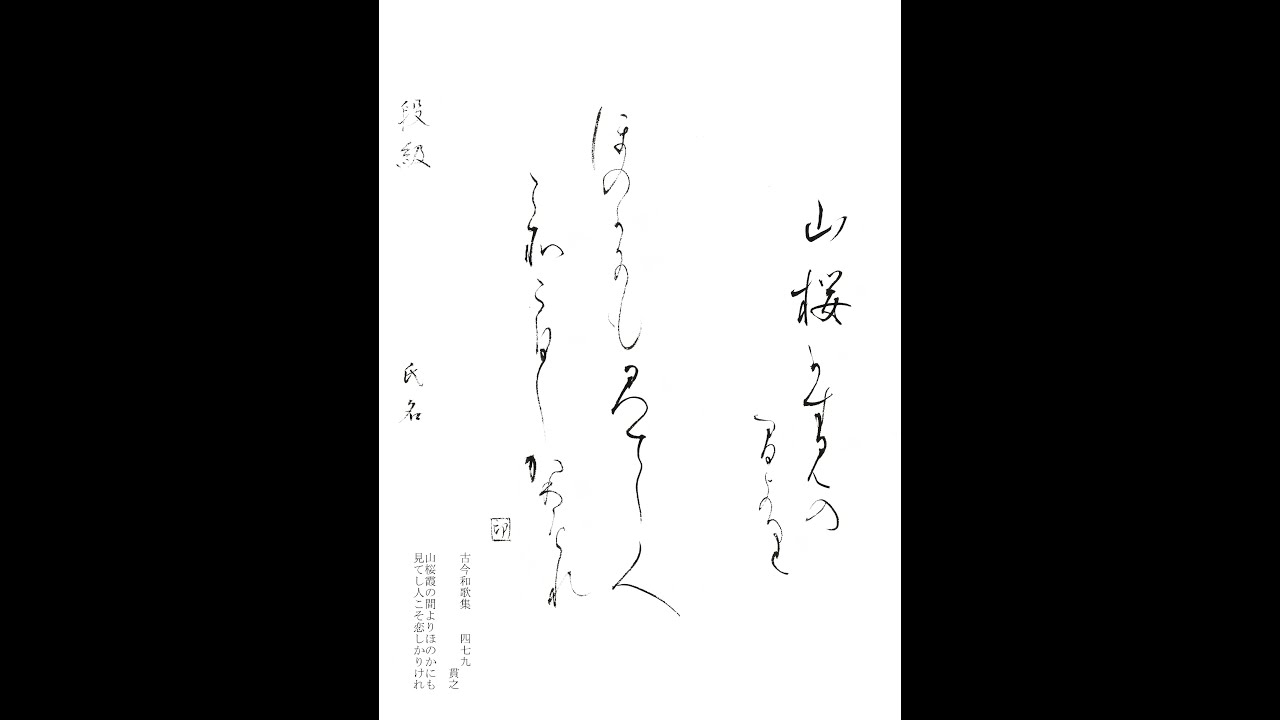 山桜かすみの
間より
ほのかにも見てし人
こそこひし
かりけれ
印
古今和歌集 四七九
貫之
山桜霞の間よりほのかにも
見てし人こそ恋しかりけれ
段級 氏名